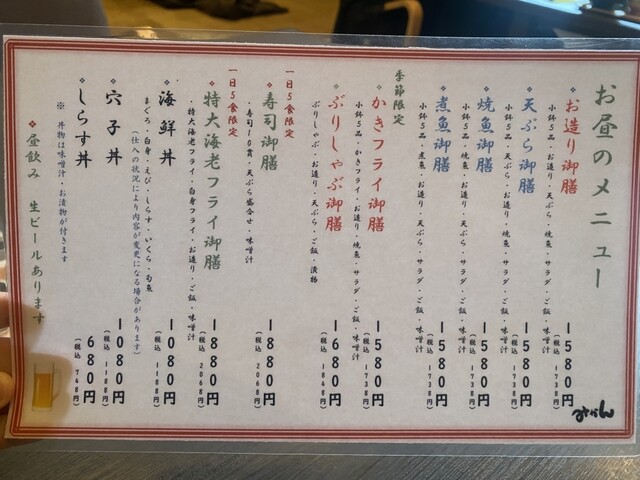 お昼のメニュー
お造り御膳
小鉢5品・お造り・天ぷら・焼魚・サラダ・ご飯・味噌汁
1580円
(税込 1738円)
天ぷら御膳
小鉢5品・天ぷら・お造り・焼魚・サラダ・ご飯・味噌汁
1580円
(税込 1738円)
焼魚御膳
小鉢5品・焼魚・お造り・天ぷら・サラダ・ご飯・味噌汁
1580円
(税込 1738円)
煮魚御膳
小鉢5品・煮魚・お造り・天ぷら・サラダ・ご飯・味噌汁
1580円
(税込 1738円)
季節限定
かきフライ御膳
小鉢5品・かきフライ・お造り・焼魚・サラダ・ご飯・味噌汁
1580円
(税込 1738円)
ぶりしゃぶ御膳
ぶりしゃぶ・お造り・天ぷら・ご飯・漬物
1680円
(税込 1848円)
一日5食限定
寿司御膳
・寿司10貫・天ぷら盛合せ・味噌汁
1880円
(税込 2068円)
一日5食限定
特大海老フライ御膳
・特大海老フライ・白身フライ・お造り・ご飯・味噌汁
1880円
(税込 2068円)
海鮮丼
まぐろ・白身・えび・しらす・いくら・旬魚
(仕入の状況により内容が変更になる場合があります)
1080円
(税込 1188円)
穴子丼
1080円
(税込 1188円)
しらす丼
680円
(税込 748円)
※ 丼物は味噌汁・お漬物が付きます
昼飲み 生ビールあります